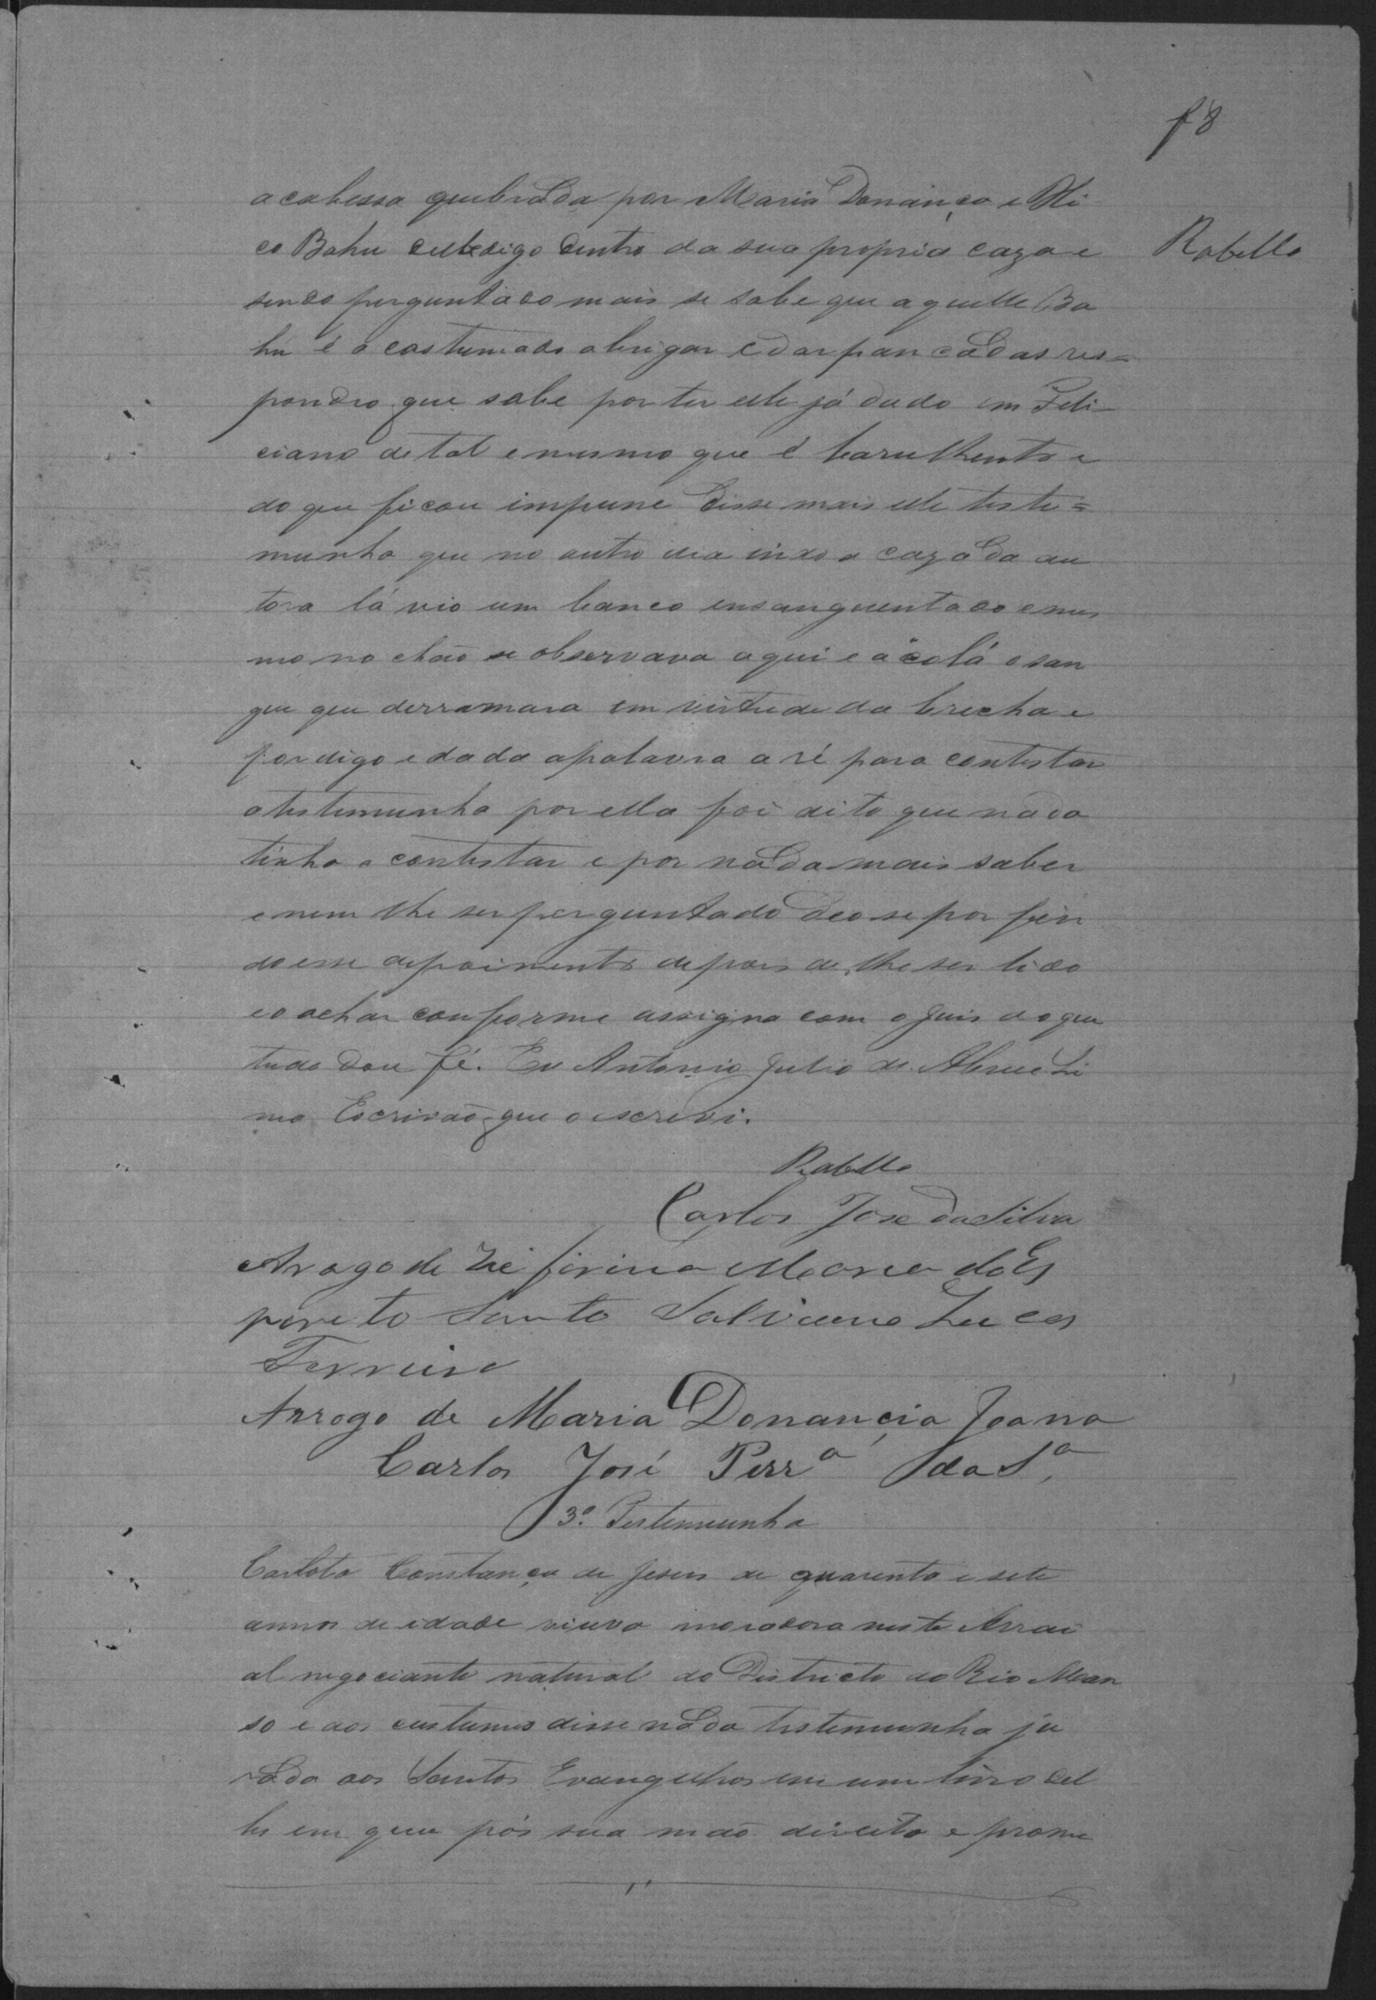 f 8
acabessa quebrada por Maria Donança e Chi
co Bahu elle digo dentro da sua propria caza e
Rabello
sendo perguntado mais se sabe que aquelle Ba
hu é acostumado abrigar edar pancadas res=
pondeo que sabe por ter elle já dado em Feli-
ciano de tal e mesmo que é barulhento e
do que ficou impune disse mais elle teste=
munha que no outro dia indo a caza da au
tora lá vio um banco ensanguentado e mes
mo no chão se observava aqui e acolá o san
gue que derramara em virtude da brecha e
por digo e dada apalavra a ré para contestar
atestemunha por ella foi dito que nada
tinha a contestar e por nada mais saber
e nem lhe ser perguntado deo se por fin
do esse depoimento depois de lhe ser lido
eo achar conforme assigna com o juis do que
tudo dou fé. Eu Antonio Julio de Abreu Li
ma Escrivão que o escrevi.
Rabello
Carlos Jose da Silva
Arogo de Zeferina Maria do Es
pireto Santo Salviano Lucas
Ferreira
Arrogo de Maria Donancia Joana
Carlos José Perrª da Sª
3ª Testemunha
Carlota Constança de Jesus de quarenta e sete
annos de idade viuva moradora neste Arrai
al negociante natural do Districto do Rio Man
so e aos custumes disse nada testemunha ju
rada aos Santos Evangelhos em um livro del
les em que pôs sua mão direita e prome